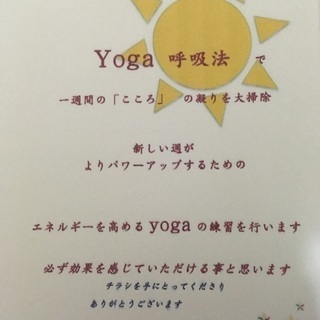 Yoga 呼吸法 で
一週間の「こころ」 の凝りを大掃除
新しい週が
よりパワーアップするための
エネルギーを高める yoga の練習を行います
必ず効果を感じていただける事と思います
チラシを手にとってくださり
ありがとうございます